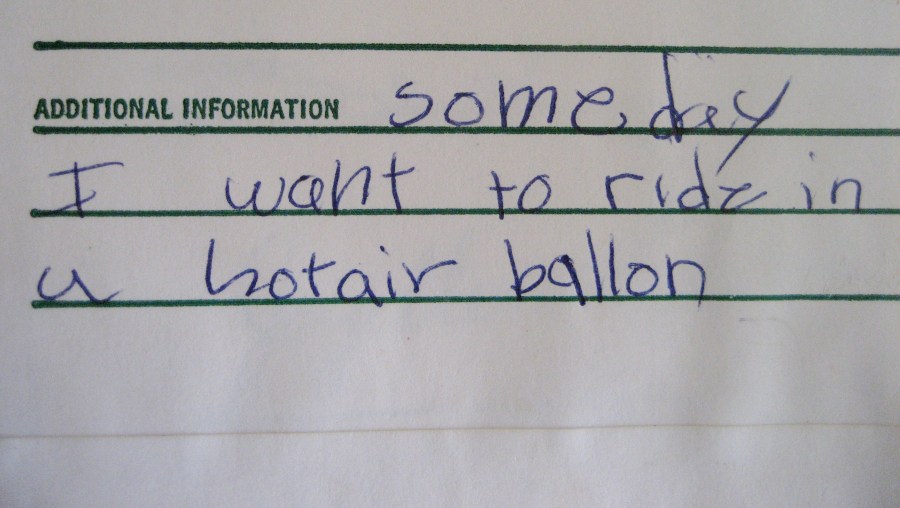 ADDITIONAL INFORMATION some day
I want to ride in
a hotair ballon